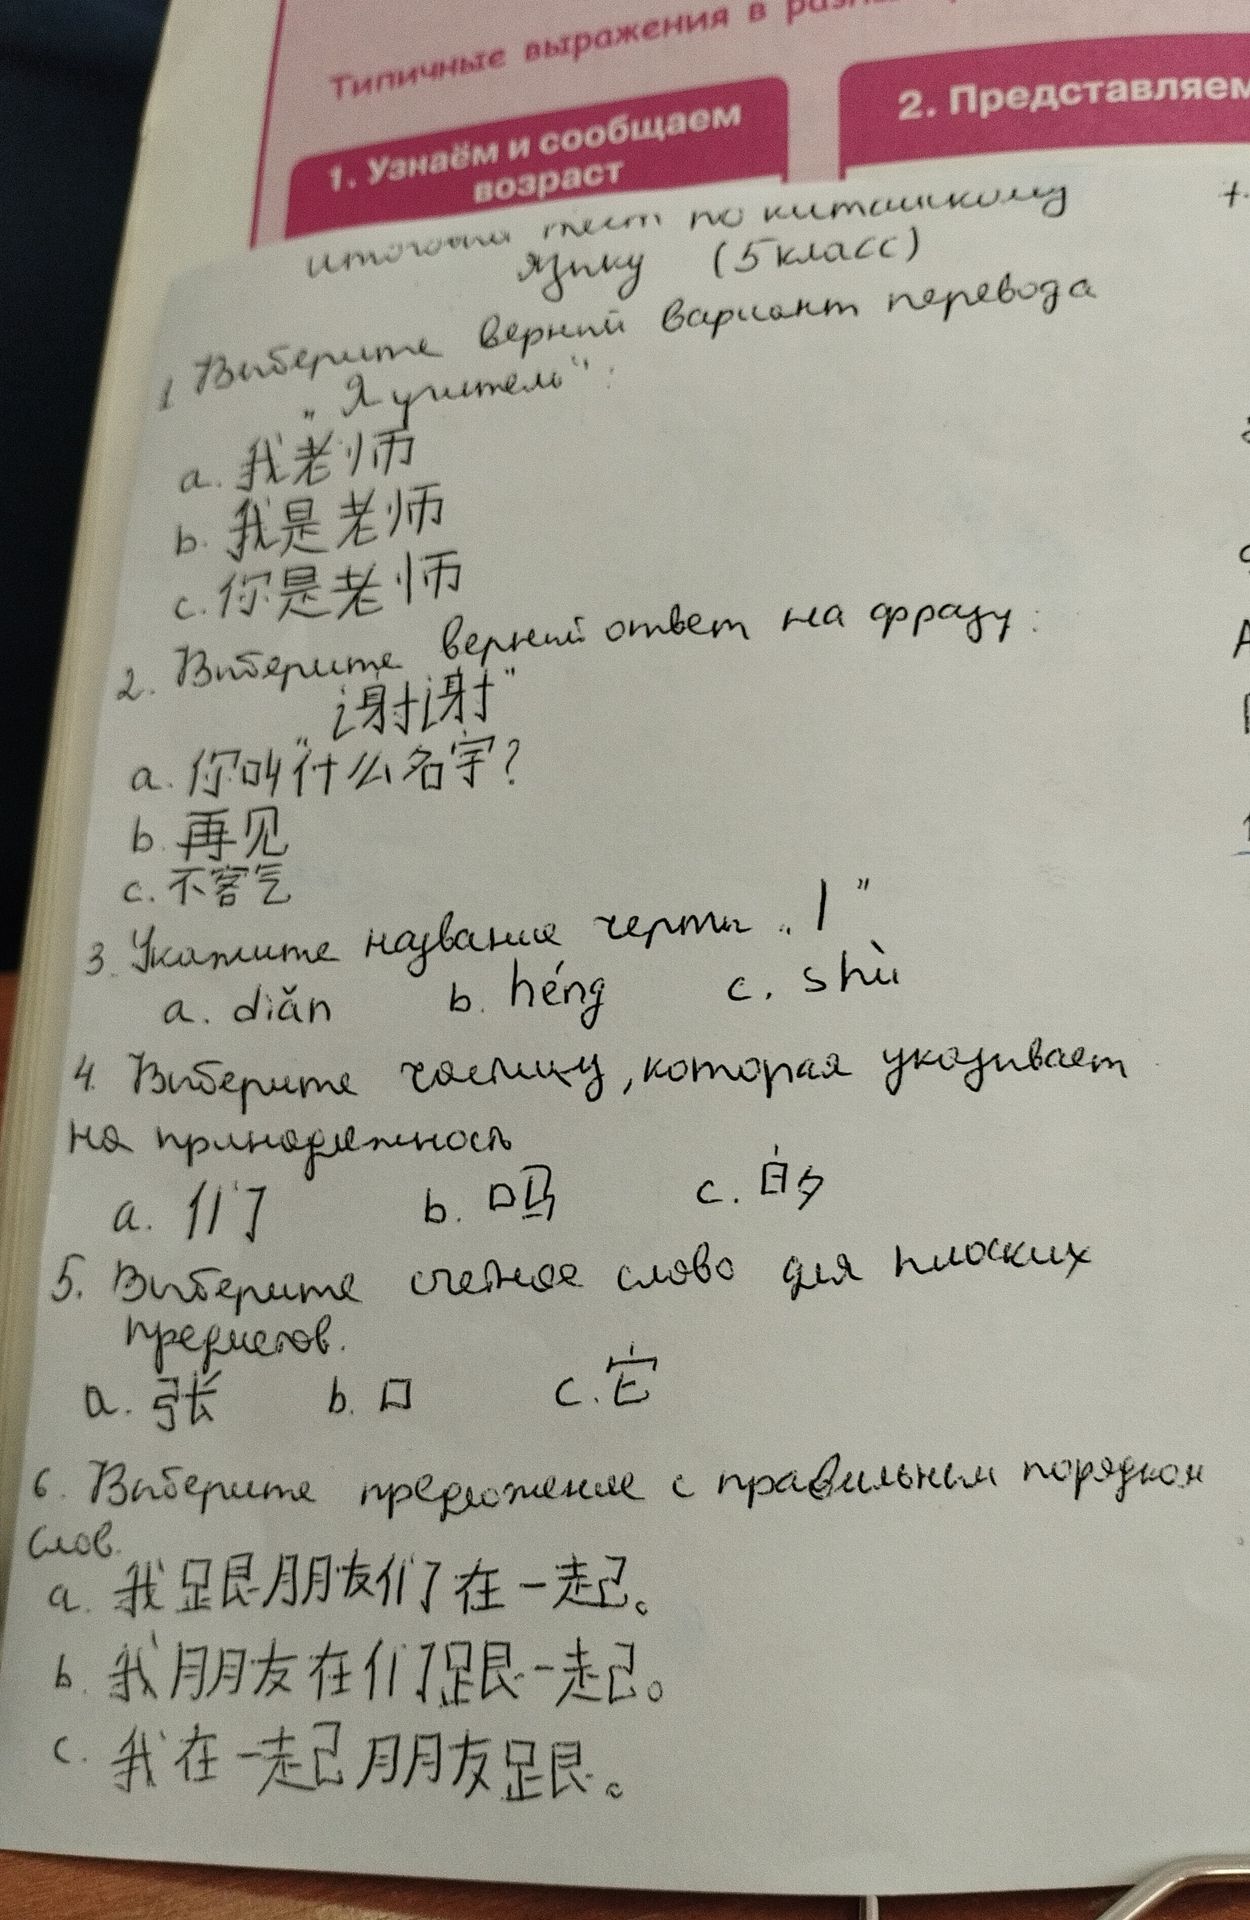 Типичные выражения в
1. Узнаём и сообщаем
возраст
2. Представляем
итоговый тест по китайскому
языку (5 класс)
1 Выберите верный вариант перевода
„Я учитель":
a. 我老师
b. 我是老师
c. 你是老师
2. Выберите верный ответ на фразу:
„谢谢"
a. 你叫什么名字?
b. 再见
c. 不客气
3. Укажите название черты „丨"
a. diǎn b. héng c. shù
4. Выберите частицу, которая указывает
на принадлежность
a. 们 b. 吗 c. 的
5. Выберите счетное слово для плоских
предметов.
a. 张 b. 口 c. 它
6. Выберите предложение с правильным порядком
слов.
a. 我跟朋友们在一起。
b. 我朋友在们跟一起。
c. 我在一起朋友跟。